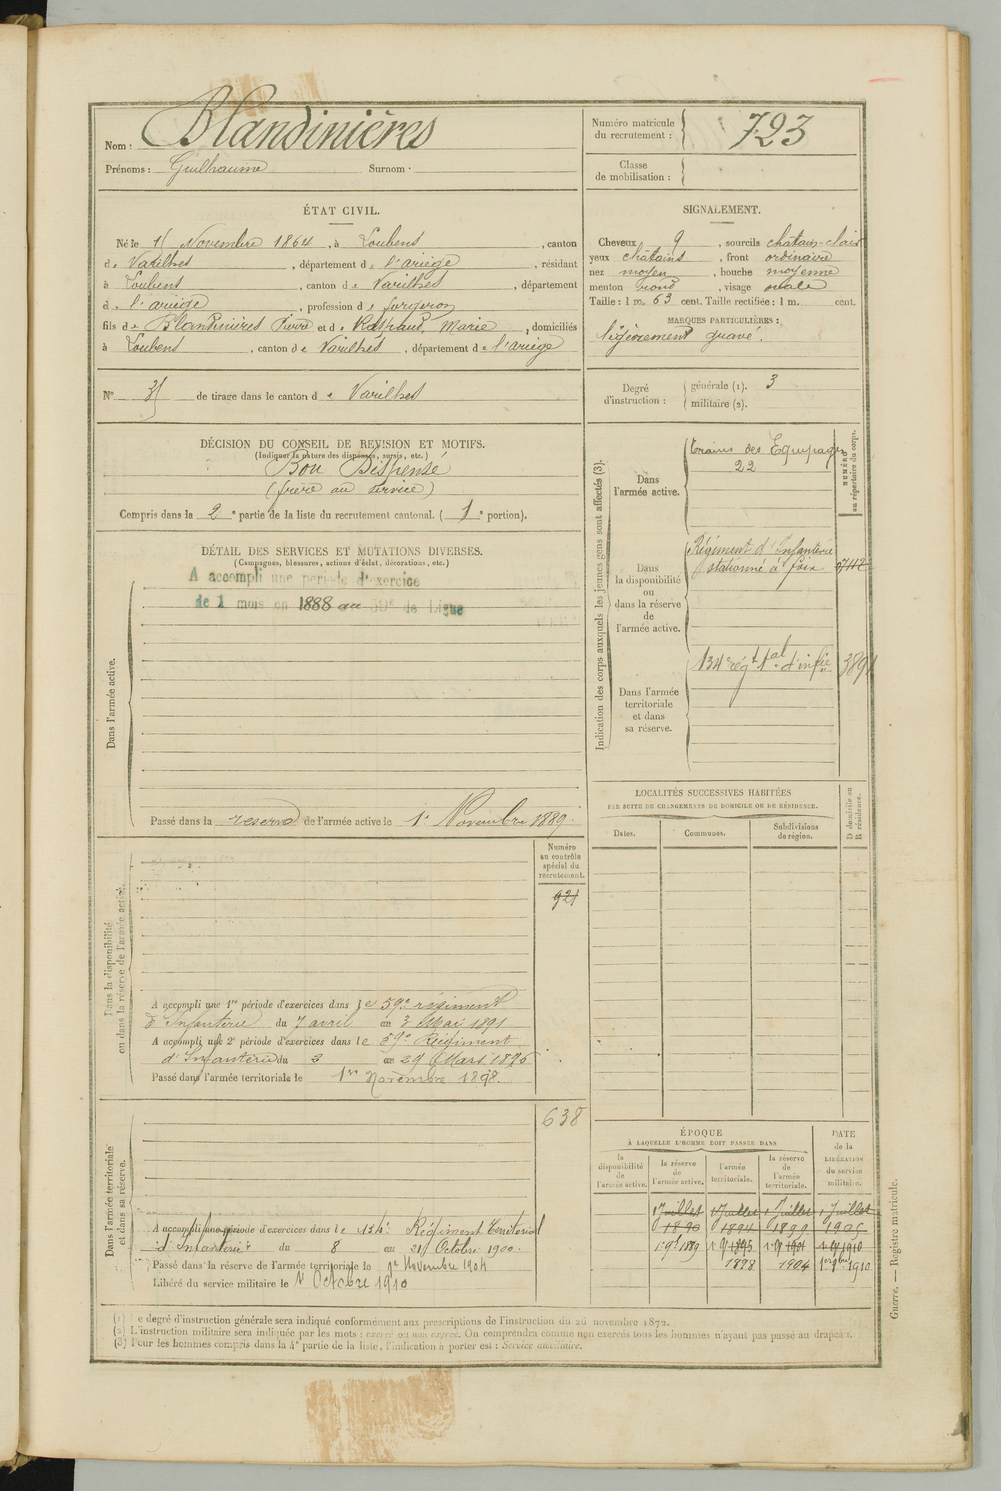 Nom : Blandinières
Prénoms : Guilhaume Surnom :
Numéro matricule du recrutement : 723
Classe de mobilisation :
ÉTAT CIVIL.
Né le Novembre 1864, à Loubens, canton
de Varilhes, département de l'ariège, résidant
à Loubens, canton de Varilhes, département
de l'ariège, profession de forgeron
fils de Blandinières Pierre et de Raspaud, Marie, domiciliés
à Loubens, canton de Varilhes, département de l'ariège
SIGNALEMENT.
Cheveux, sourcils châtain-clair
yeux châtains, front ordinaire
nez moyen, bouche moyenne
menton rond, visage ovale
Taille : 1 m. 63 cent. Taille rectifiée : 1 m. cent.
MARQUES PARTICULIÈRES :
légèrement gravé.
N° de tirage dans le canton de Varilhes
Degré d'instruction :
générale (1). 3
militaire (2).
DÉCISION DU CONSEIL DE REVISION ET MOTIFS.
(Indiquer la nature des dispenses, sursis, etc.)
Bon Dispensé
(frère au service)
Compris dans la 2e partie de la liste du recrutement cantonal. (1e portion).
DÉTAIL DES SERVICES ET MUTATIONS DIVERSES.
(Campagnes, blessures, actions d'éclat, décorations, etc.)
Dans l'armée active.
A accompli une période d'exercice
de 1 mois en 1888 au 59e de Ligne
Passé dans la reserve de l'armée active le 1r Novembre 1889.
Indication des corps auxquels les jeunes gens sont affectés (3).
NUMÉRO au répertoire du corps.
Dans l'armée active.
Trains des Equipages
22
Dans la disponibilité ou dans la réserve de l'armée active.
Régiment d'Infanterie
stationné à foix
Dans l'armée territoriale et dans sa réserve.
134e régt tal d'infie
LOCALITÉS SUCCESSIVES HABITÉES
PAR SUITE DE CHANGEMENTS DE DOMICILE OU DE RÉSIDENCE.
Dates. Communes. Subdivisions de région. D domicile ou R résidence.
Dans la disponibilité ou dans la réserve de l'armée active.
Numéro au contrôle spécial du recrutement.
921
A accompli une 1re période d'exercices dans le 59e régiment
d'Infanterie du 7 avril au 3 Mai 1891
A accompli une 2e période d'exercices dans le 59e Régiment
d'Infanterie du 3 au 29 Mars 1896
Passé dans l'armée territoriale le 1er Novembre 1898.
Dans l'armée territoriale et dans sa réserve.
638
A accompli une période d'exercices dans le 134e Régiment Territorial
d'Infanterie du 8 au 21 Octobre 1900.
Passé dans la réserve de l'armée territoriale le 1er Novembre 1904
Libéré du service militaire le 1r Octobre 1910
ÉPOQUE
À LAQUELLE L'HOMME DOIT PASSER DANS
la disponibilité de l'armée active.
la réserve de l'armée active.
l'armée territoriale.
la réserve de l'armée territoriale.
DATE de la LIBÉRATION du service militaire.
1 Juillet 1 Juillet 1 Juillet 1 Juillet
1890 1894 1899 1905
1898 1904 1910
(1) Le degré d'instruction générale sera indiqué conformément aux prescriptions de l'instruction du 26 novembre 1872.
(2) L'instruction militaire sera indiquée par les mots : exercé ou non exercé. On comprendra comme non exercés tous les hommes n'ayant pas passé au drapeau.
(3) Pour les hommes compris dans la 4e partie de la liste, l'indication à porter est : Service auxiliaire.
Guerre. — Registre matricule.